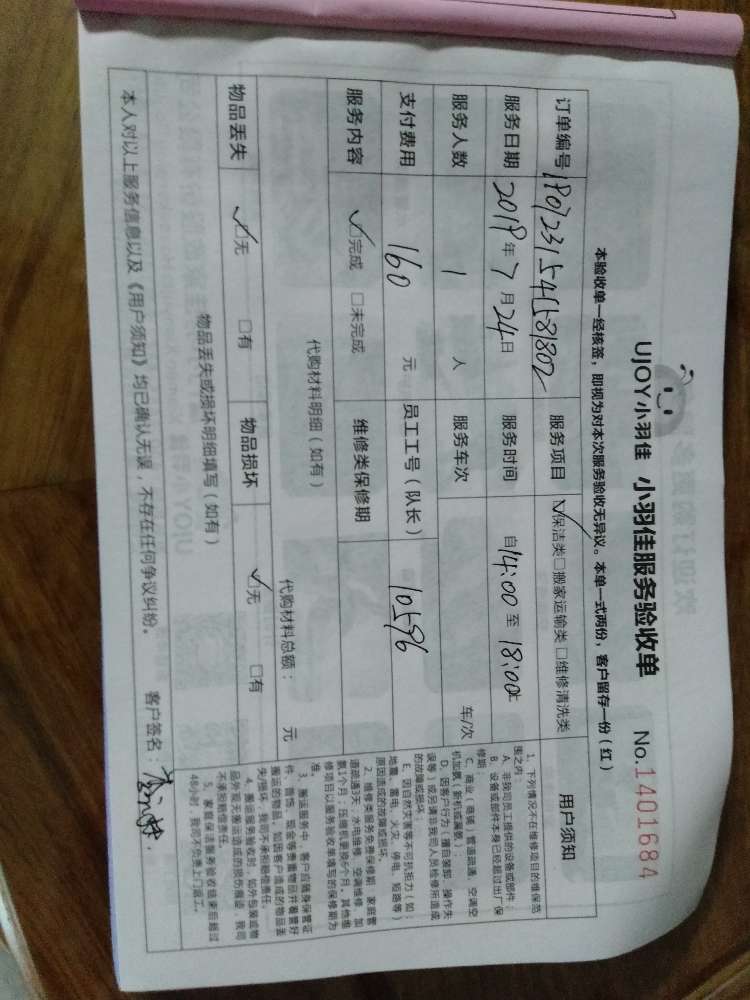 UJOY小羽佳 小羽佳服务验收单 No.1401684
本验收单一经核签，即视为对本次服务验收无异议。本单一式两份，客户留存一份（红）
订单编号 服务项目 保洁类□搬家运输类□维修清洗类
服务日期 2019年7月24日 服务时间 自14:00至18:00止
服务人数 1 人 服务车次 车/次
支付费用 160 元 员工工号（队长） 10596
服务内容 ☑完成 □未完成 维修类保修期
代购材料明细（如有）
代购材料总额： 元
物品丢失 ☑无 □有 物品损坏 ☑无 □有
物品丢失或损坏明细填写（如有）
本人对以上服务信息以及《用户须知》均已确认无误，不存在任何争议纠纷。 客户签名：
用户须知
1、下列情况不在维修项目的维保范
围之内：
A、非我司员工提供的设备或部件；
B、设备或部件本身已经超过出厂保
修期；
C、商业（商铺）管道疏通、空调空
机加氟（新机或漏氟）；
D、因客户行为（擅自装卸、操作失
误等）或另请非我司人员维修所造成
的故障或损坏
E、因自然灾害等不可抗拒力（如：
地震、雷电、火灾、停电、短路等）
原因造成的故障或损坏。
2、维修类服务免费保修期：家庭管
道疏通3天；水电维修、空调维修、加
氟1个月；压缩机更换6个月。其他维
修项目以服务验收单填写的保修期为
准。
3、搬运服务中，客户应随身保管证
件、首饰、现金等贵重物品并看管好
搬运的物品，如因客户造成的物品丢
失/损坏，我司不承担赔偿责任。
4、搬运服务验收时，如外包装或物
品外观有搬运造成的损伤痕迹，我司
不承担赔偿责任。
5、家庭保洁服务验收结束后超过
48小时，我司不负责上门返工。